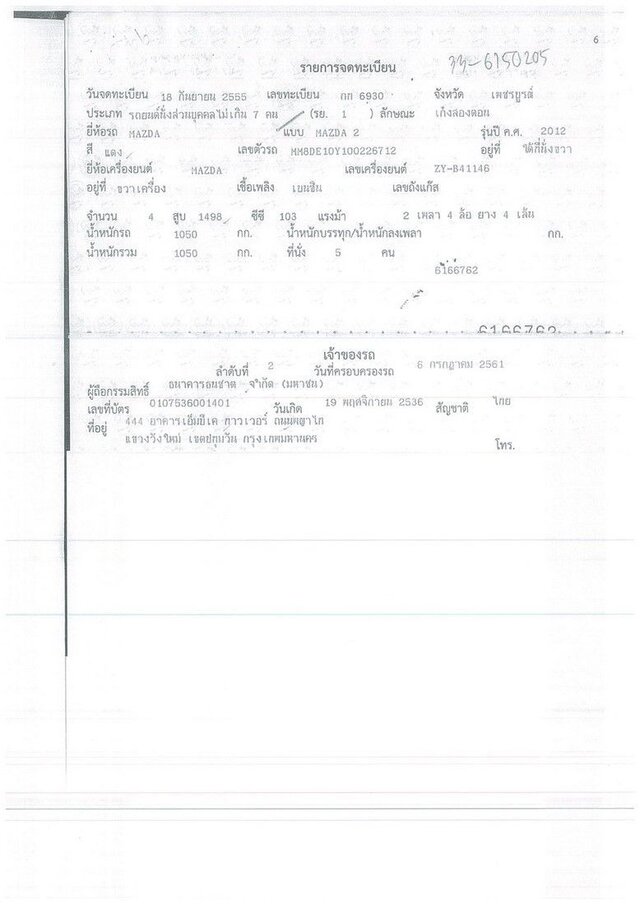 6
33-6150205
รายการจดทะเบียน
วันจดทะเบียน 18 กันยายน 2555 เลขทะเบียน กก 6930 จังหวัด เพชรบูรณ์
ประเภท รถยนต์นั่งส่วนบุคคลไม่เกิน 7 คน (รย. 1 ) ลักษณะ เก๋งสองตอน
ยี่ห้อรถ MAZDA แบบ MAZDA 2 รุ่นปี ค.ศ. 2012
สี แดง เลขตัวรถ MM8DE10Y100226712 อยู่ที่ ใต้ที่นั่งขวา
ยี่ห้อเครื่องยนต์ MAZDA เลขเครื่องยนต์ ZY-B41146
อยู่ที่ ขวาเครื่อง เชื้อเพลิง เบนซิน เลขถังแก๊ส
จำนวน 4 สูบ 1498 ซีซี 103 แรงม้า 2 เพลา 4 ล้อ ยาง 4 เส้น
น้ำหนักรถ 1050 กก. น้ำหนักบรรทุก/น้ำหนักลงเพลา กก.
น้ำหนักรวม 1050 กก. ที่นั่ง 5 คน
6166762
6166762
เจ้าของรถ
ลำดับที่ 2 วันที่ครอบครองรถ 6 กรกฎาคม 2561
ผู้ถือกรรมสิทธิ์ ธนาคารธนชาต จำกัด (มหาชน)
เลขที่บัตร 0107536001401 วันเกิด 19 พฤศจิกายน 2536 สัญชาติ ไทย
ที่อยู่ 444 อาคารเอ็มบีเค ทาวเวอร์ ถนนพญาไท
แขวงวังใหม่ เขตปทุมวัน กรุงเทพมหานคร
โทร.